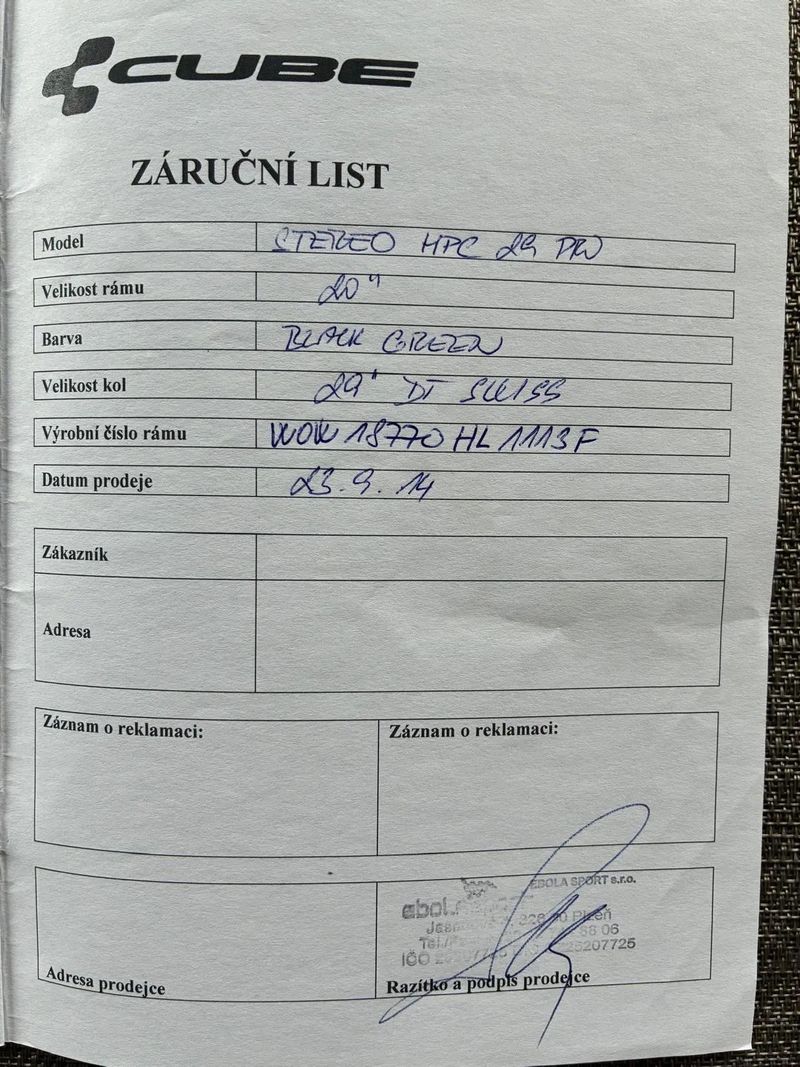 CUBE
ZÁRUČNÍ LIST
Model STEREO HPC 29 PRO
Velikost rámu 20"
Barva BLACK GREEN
Velikost kol 29" DT SWISS
Výrobní číslo rámu WOW18770HL1113F
Datum prodeje 23.9.14
Zákazník
Adresa
Záznam o reklamaci: Záznam o reklamaci:
EBOLA SPORT s.r.o.
Plzeň
Tel./ 68 06
IČO 25207725
Adresa prodejce Razítko a podpis prodejce